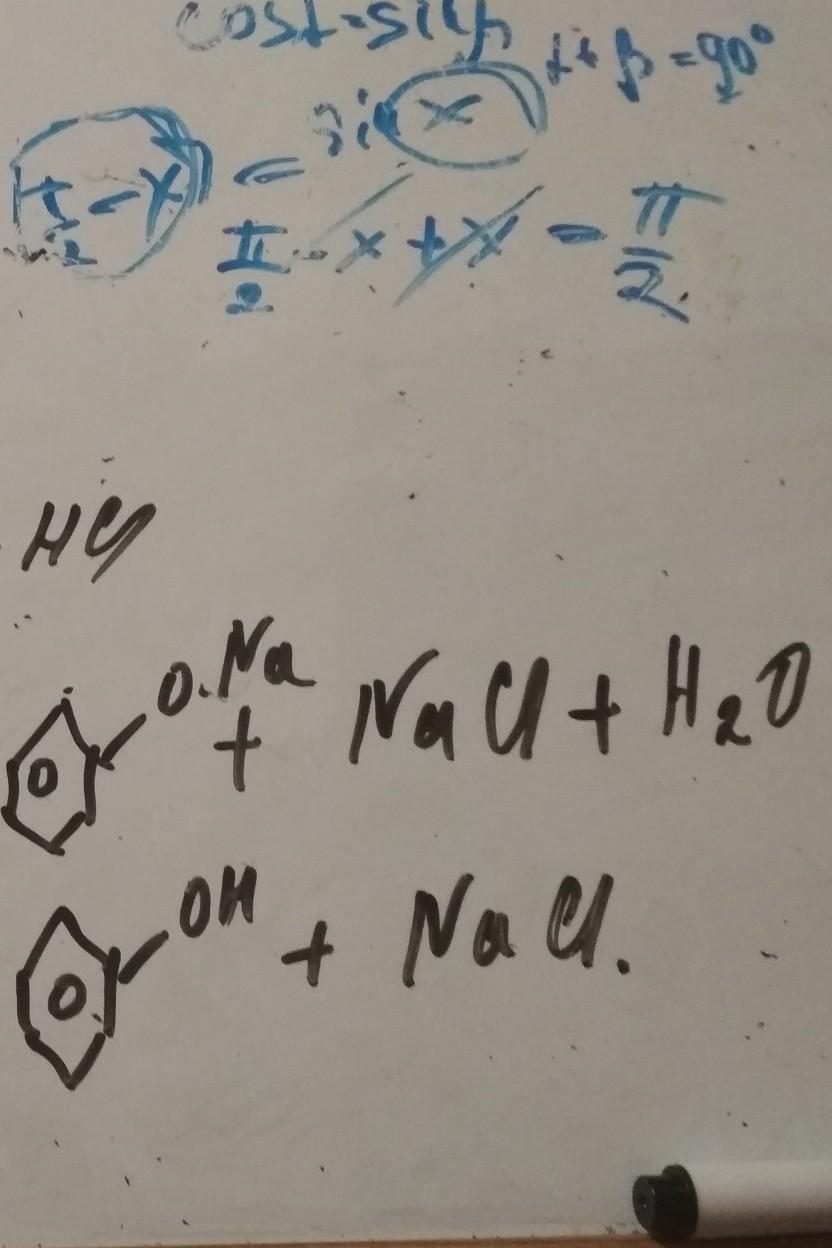 cosα=sinβ α+β=90°
π/2-x) = sin(x)
π/2 - x + x = π/2
HCl
O.Na + NaCl + H₂O
OH + NaCl.